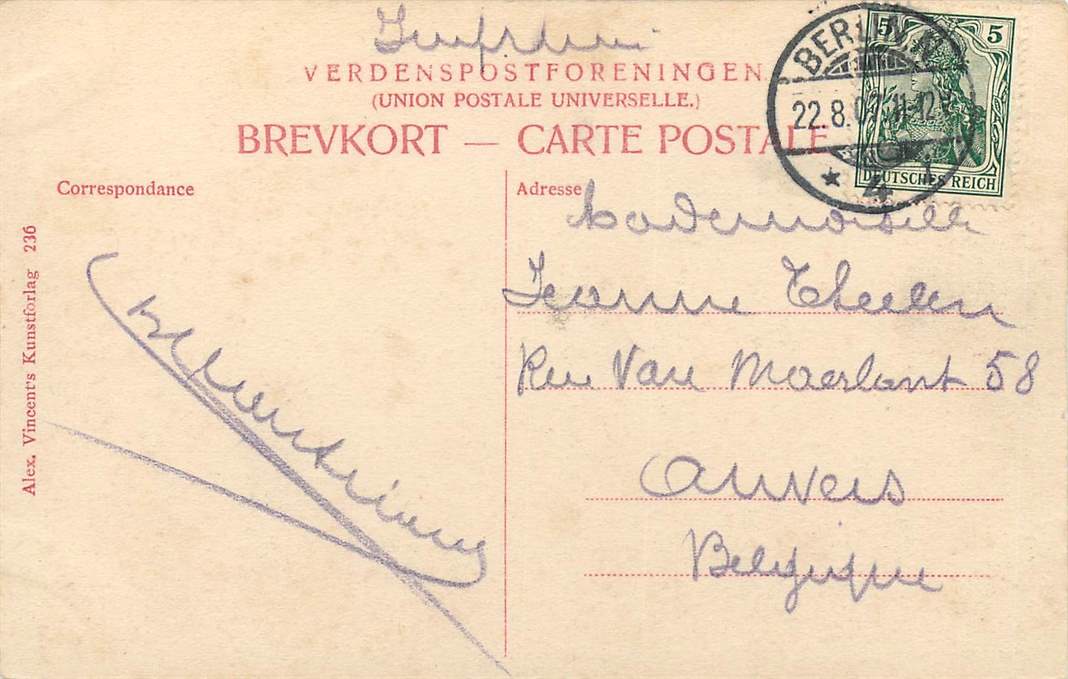 VERDENSPOSTFORENINGEN.
(UNION POSTALE UNIVERSELLE.)
BREVKORT — CARTE POSTALE
BERLIN
22.8.07.11-12V.
* 4
5 5
DEUTSCHES REICH
Correspondance
Adresse
Mademoiselle
Jeanne Theelen
Rue Van Maerlant 58
Anvers
Belgique
Alex. Vincent's Kunstforlag 236